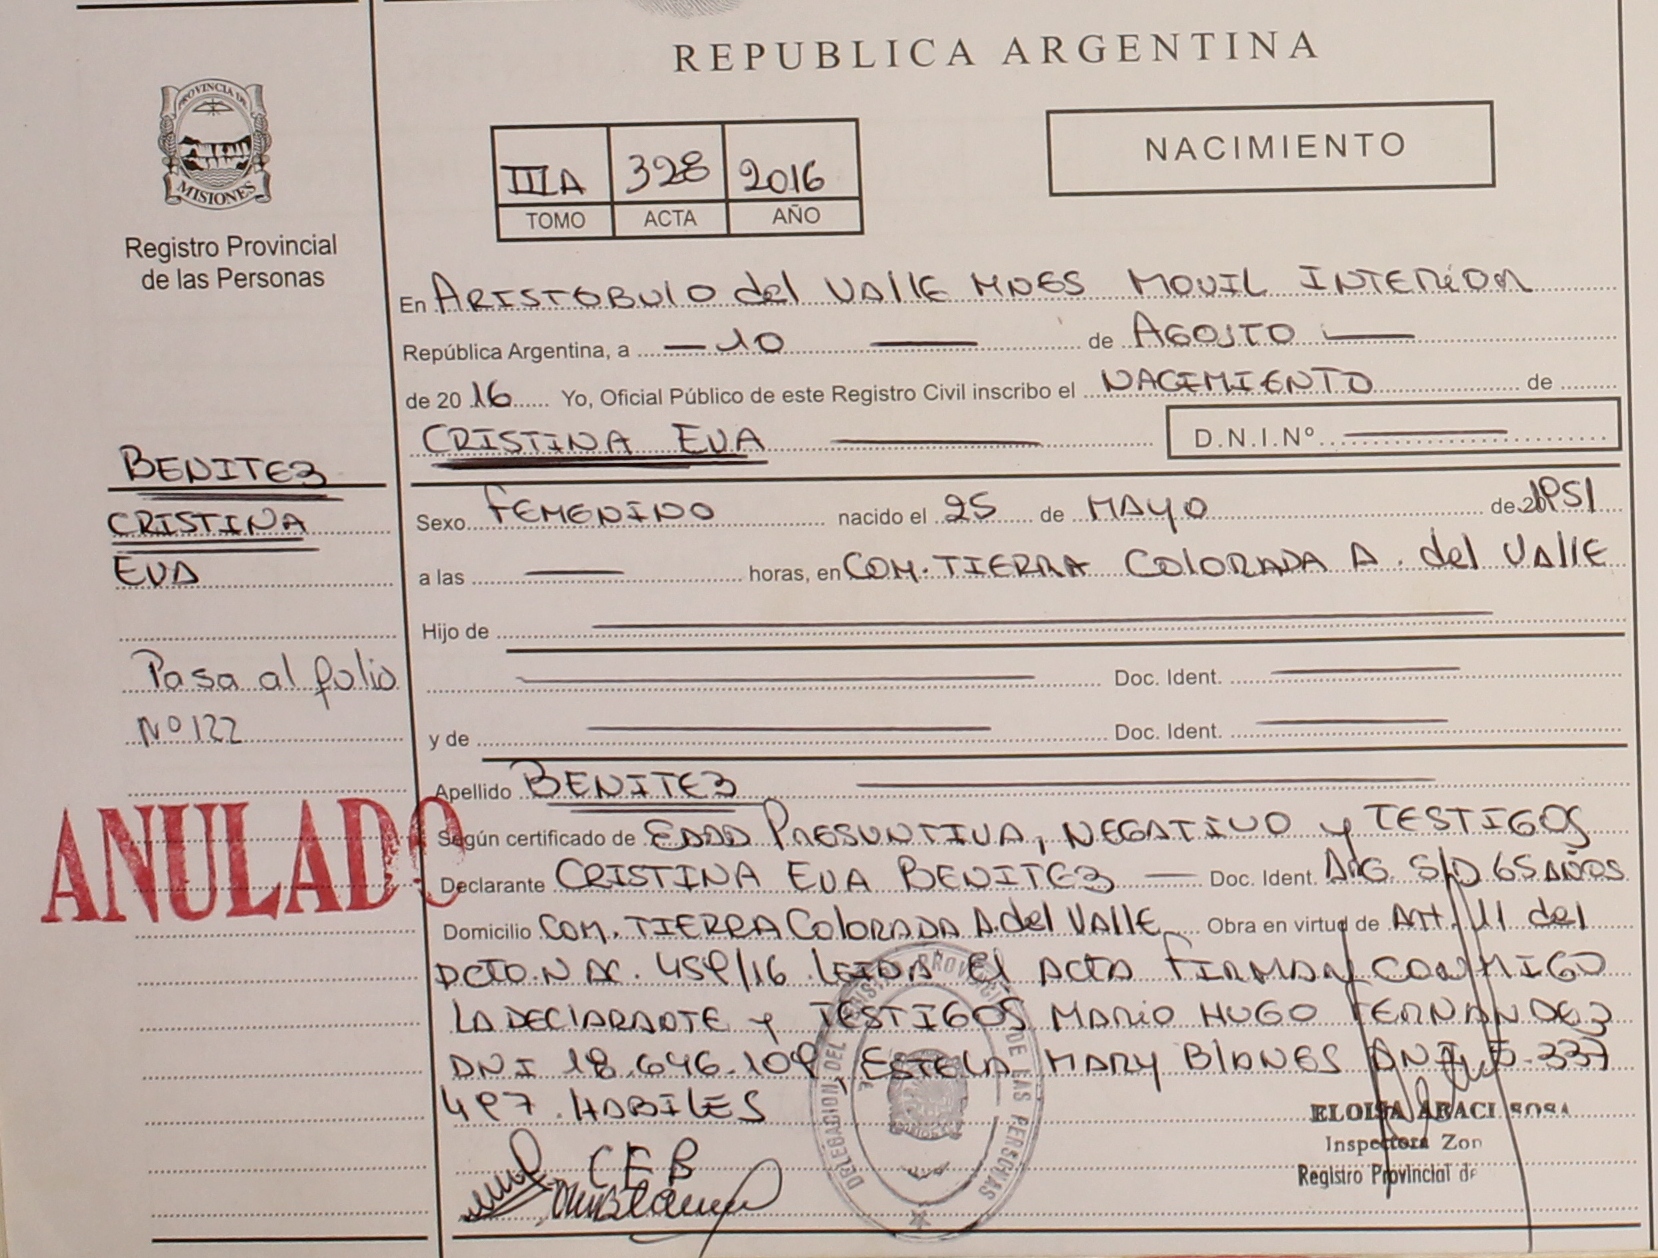 REPUBLICA ARGENTINA
PROVINCIA DE
MISIONES
Registro Provincial
de las Personas
IIIA 328 2016
TOMO ACTA AÑO
NACIMIENTO
En ARISTOBULO del VALLE MNES MOVIL INTERIOR
República Argentina, a 10 de AGOSTO
de 2016 Yo, Oficial Público de este Registro Civil inscribo el NACIMIENTO de
CRISTINA EVA D.N.I.Nº
BENITEZ
CRISTINA
EVA
Sexo FEMENINO nacido el 25 de MAYO de 1951
a las horas, en COM. TIERRA COLORADA A. del VALLE
Hijo de
Doc. Ident.
y de Doc. Ident.
Pasa al folio
Nº 122
ANULADO
Apellido BENITEZ
Según certificado de EDAD PRESUNTIVA, NEGATIVO y TESTIGOS
Declarante CRISTINA EVA BENITEZ Doc. Ident. ARG. S/D 65 AÑOS
Domicilio COM. TIERRA COLORADA A. del VALLE Obra en virtud de Art. 11 del
DCTO. NAC. 459/16 LEIDA El ACTA FIRMAN CONMIGO
LA DECLARANTE y TESTIGOS MARIO HUGO FERNANDEZ
DNI 18.646.109, ESTELA MARY BLANES DNI 5.337
497. HABILES
CEB
DELEGACION DEL REGISTRO PROVINCIAL DE LAS PERSONAS
ELOISA ARACI SOSA
Inspectora Zon
Registro Provincial de